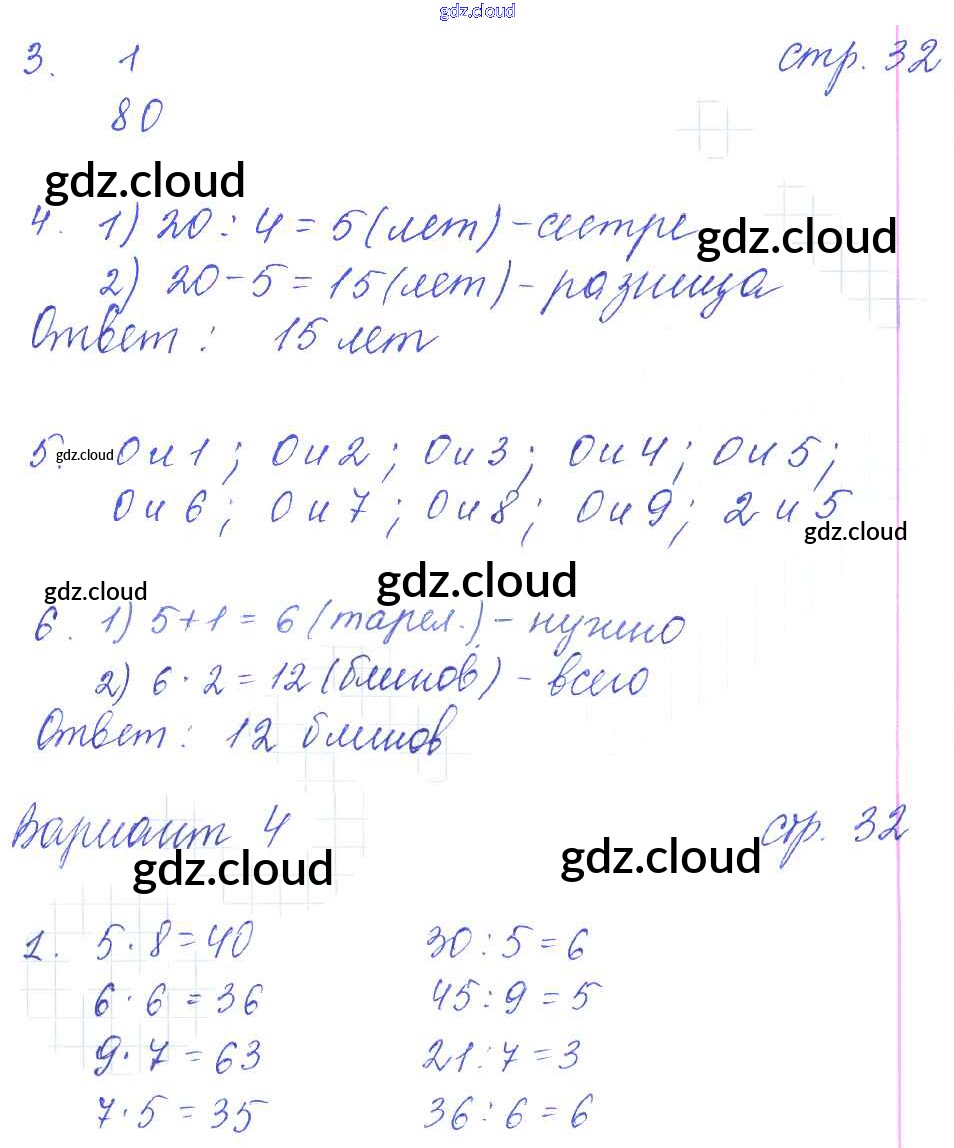 gdz.cloud
3. 1 стр. 32
80
gdz.cloud
4. 1) 20 : 4 = 5 (лет) - сестре
gdz.cloud
2) 20 - 5 = 15 (лет) - разница
Ответ : 15 лет
5. 0 и 1 ; 0 и 2 ; 0 и 3 ; 0 и 4 ; 0 и 5 ;
gdz.cloud
0 и 6 ; 0 и 7 ; 0 и 8 ; 0 и 9 ; 2 и 5
gdz.cloud
gdz.cloud
gdz.cloud
6. 1) 5 + 1 = 6 (тарел.) - нужно
2) 6 · 2 = 12 (блинов) - всего
Ответ : 12 блинов
Вариант 4 стр. 32
gdz.cloud
gdz.cloud
1. 5 · 8 = 40 30 : 5 = 6
6 · 6 = 36 45 : 9 = 5
9 · 7 = 63 21 : 7 = 3
7 · 5 = 35 36 : 6 = 6